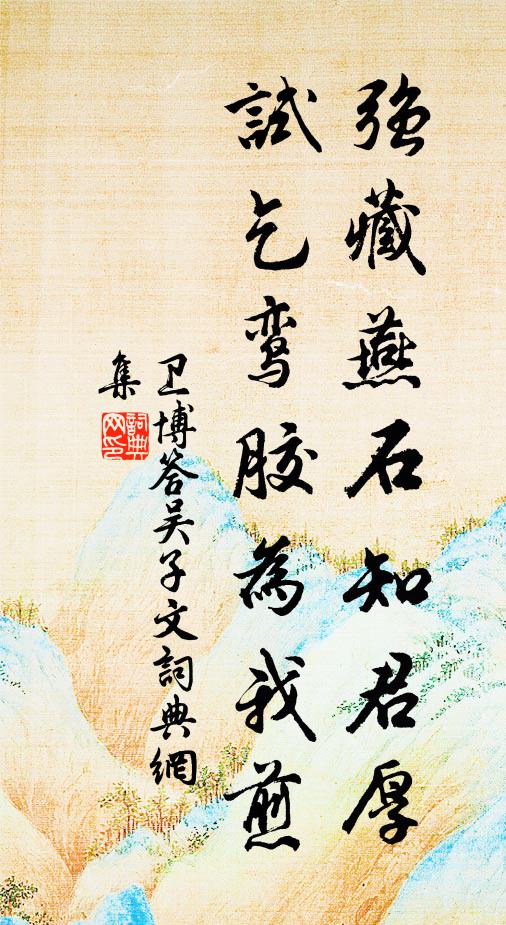 强藏燕石知君厚
試乞鸾胶為我煎
卫博答吴子文詞典網
集
詞典网印